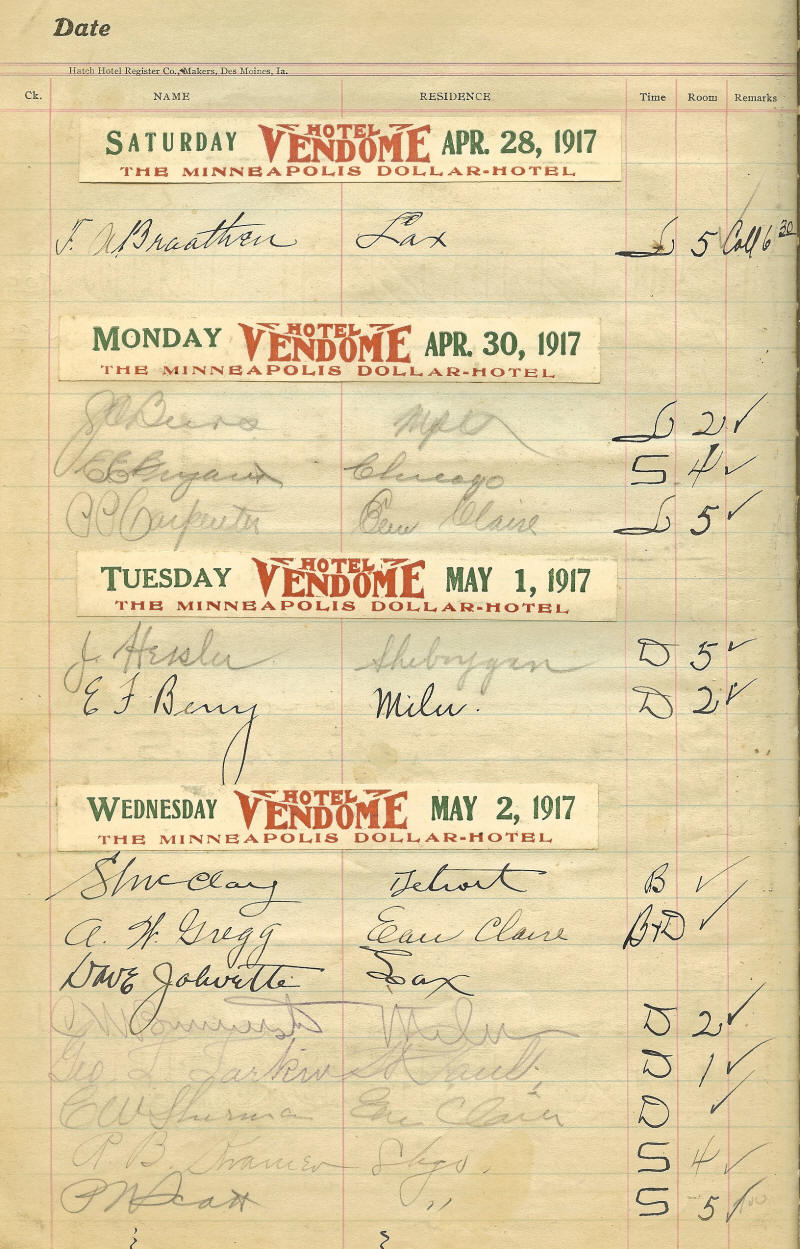 Date
Hatch Hotel Register Co., Makers, Des Moines, Ia.
Ck. NAME RESIDENCE Time Room Remarks
SATURDAY HOTEL VENDOME APR. 28, 1917
THE MINNEAPOLIS DOLLAR-HOTEL
F. A. Braathen Lax L 5 Call 6 30
MONDAY HOTEL VENDOME APR. 30, 1917
THE MINNEAPOLIS DOLLAR-HOTEL
Mpls L 2 ✓
Chicago S 4 ✓
Carpenter Eau Claire L 5 ✓
TUESDAY HOTEL VENDOME MAY 1, 1917
THE MINNEAPOLIS DOLLAR-HOTEL
J. Heisler Sheboygan D 5 ✓
E F Berry Milw. D 2 ✓
WEDNESDAY HOTEL VENDOME MAY 2, 1917
THE MINNEAPOLIS DOLLAR-HOTEL
Detroit B ✓
A. W. Gregg Eau Claire B+D ✓
Dave Lax
Milw D 2 ✓
Geo L Larkin St Paul. D 1 ✓
C W Sherman Eau Claire D ✓
B. Kramer Shgo. S 4 ✓
Scott " S 5 ✓